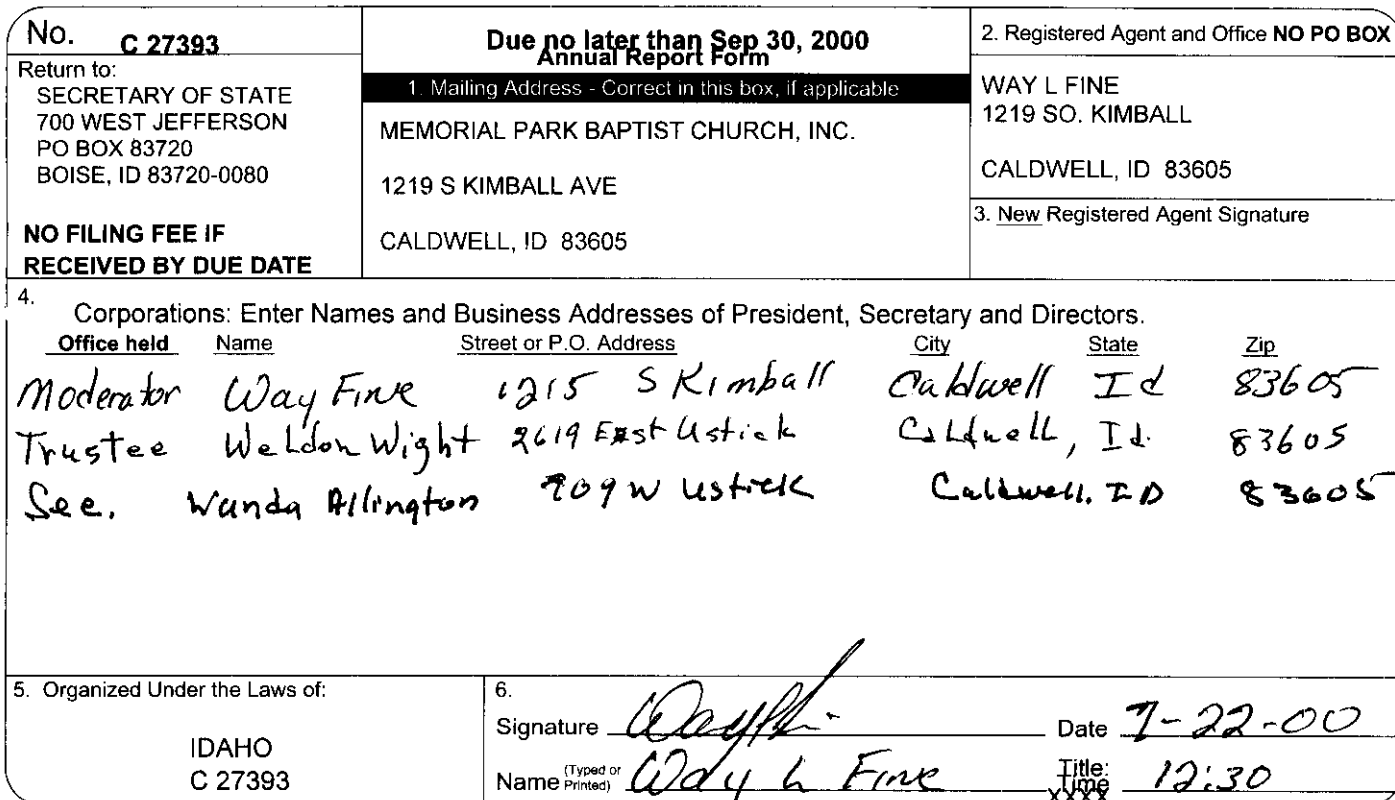 No. C 27393
Return to:
SECRETARY OF STATE
700 WEST JEFFERSON
PO BOX 83720
BOISE, ID 83720-0080
NO FILING FEE IF
RECEIVED BY DUE DATE
Due no later than Sep 30, 2000
Annual Report Form
1. Mailing Address - Correct in this box, if applicable
MEMORIAL PARK BAPTIST CHURCH, INC.
1219 S KIMBALL AVE
CALDWELL, ID 83605
2. Registered Agent and Office NO PO BOX
WAY L FINE
1219 SO. KIMBALL
CALDWELL, ID 83605
3. New Registered Agent Signature
4. Corporations: Enter Names and Business Addresses of President, Secretary and Directors.
Office held Name Street or P.O. Address City State Zip
Moderator Way Fine 1215 S Kimball Caldwell Id 83605
Trustee Weldon Wight 2619 East Ustick Caldwell, Id. 83605
Sec. Wanda Allington 909 W Ustick Caldwell, ID 83605
5. Organized Under the Laws of:
IDAHO
C 27393
6.
Signature Date 7-22-00
Name (Typed or Printed) Way L Fine Title: Time XXXX 12:30